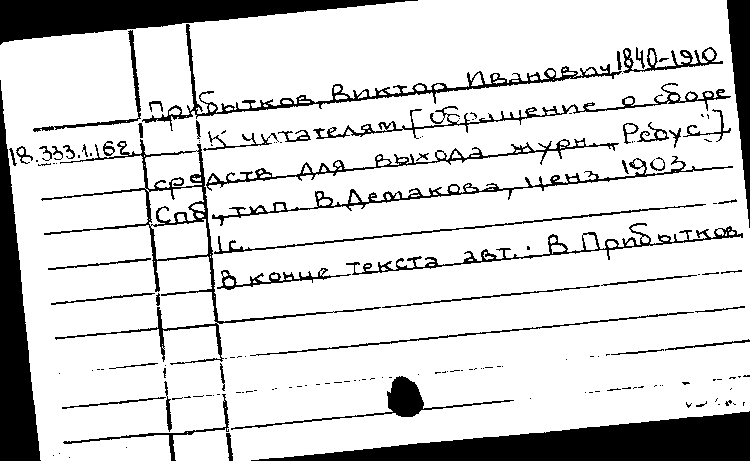 Прибытков, Виктор Иванович, 1840-1910
К читателям. [Обращение о сборе
18.333.1.162.
средств для выхода журн. „Ребус"].
Спб., тип. В. Демакова, ценз. 1903.
1 с.
В конце текста авт.: В. Прибытков.